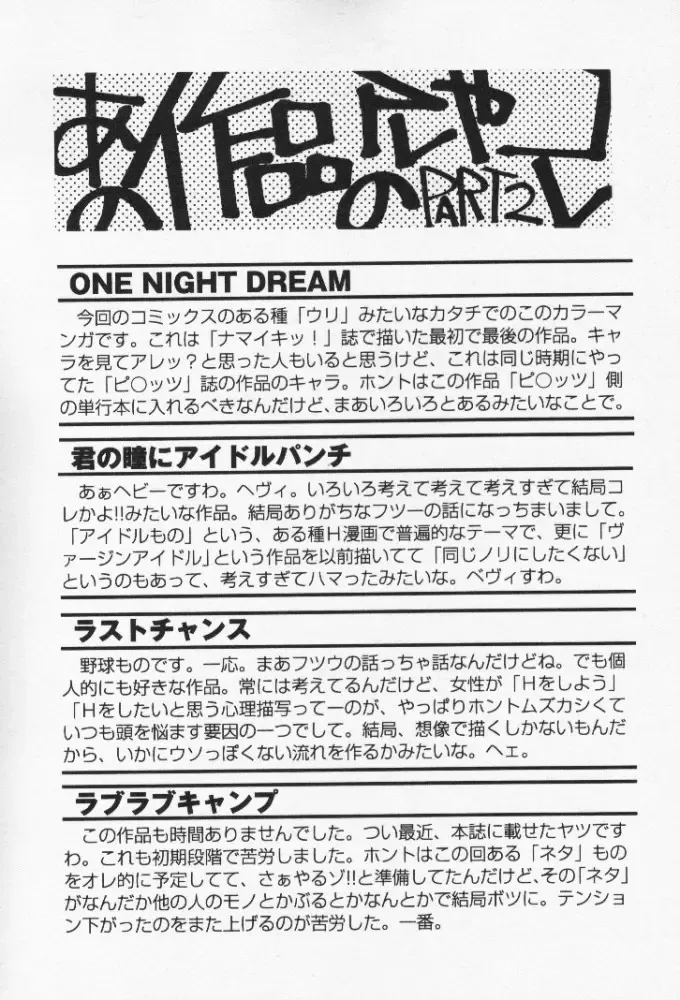 あの作品のアレやコレ
PART2
ONE NIGHT DREAM
今回のコミックスのある種「ウリ」みたいなカタチでのこのカラーマ
ンガです。これは「ナマイキッ！」誌で描いた最初で最後の作品。キャ
ラを見てアレッ？と思った人もいると思うけど、これは同じ時期にやっ
てた「ピ○ッツ」誌の作品のキャラ。ホントはこの作品「ピ○ッツ」側
の単行本に入れるべきなんだけど、まあいろいろとあるみたいなことで。
君の瞳にアイドルパンチ
あぁヘビーですわ。ヘヴィ。いろいろ考えて考えて考えすぎて結局コ
レかよ!!みたいな作品。結局ありがちなフツーの話になっちまいまして。
「アイドルもの」という、ある種Ｈ漫画で普遍的なテーマで、更に「ヴ
ァージンアイドル」という作品を以前描いてて「同じノリにしたくない」
というのもあって、考えすぎてハマったみたいな。ベヴィすわ。
ラストチャンス
野球ものです。一応。まあフツウの話っちゃ話なんだけどね。でも個
人的にも好きな作品。常には考えてるんだけど、女性が「Ｈをしよう」
「Ｈをしたいと思う心理描写ってーのが、やっぱりホントムズカシくて
いつも頭を悩ます要因の一つでして。結局、想像で描くしかないもんだ
から、いかにウソっぽくない流れを作るかみたいな。ヘェ。
ラブラブキャンプ
この作品も時間ありませんでした。つい最近、本誌に載せたヤツです
わ。これも初期段階で苦労しました。ホントはこの回ある「ネタ」もの
をオレ的に予定してて、さぁやるゾ!!と準備してたんだけど、その「ネタ」
がなんだか他の人のモノとかぶるとかなんとかで結局ボツに。テンショ
ン下がったのをまた上げるのが苦労した。一番。